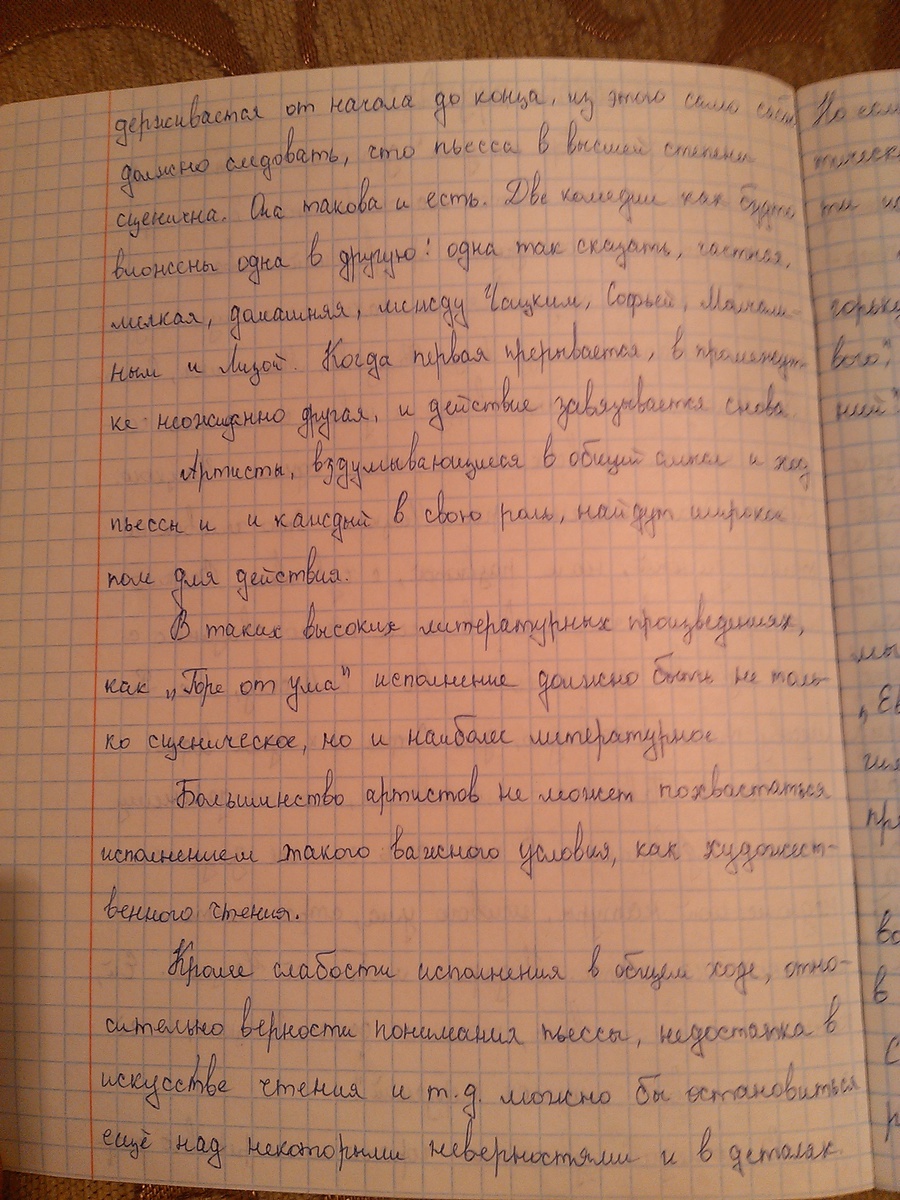 держивается от начала до конца, из этого само собой
должно следовать, что пьесса в высшей степени
сценична. Она такова и есть. Две комедии как будто
вложены одна в другую: одна так сказать, частная,
мелкая, домашняя, между Чацким, Софьей, Молчали-
ным и Лизой. Когда первая прерывается, в промежут-
ке неожиданно другая, и действие завязывается снова.
Артисты, вздумывающиеся в общий смысл и ход
пьессы и и каждый в свою роль, найдут широкое
поле для действия.
В таких высоких литературных произведениях,
как „Горе от ума" исполнение должно быть не толь-
ко сценическое, но и наиболее литературное
Большинство артистов не может похвастаться
исполнением такого важного условия, как художест-
венного чтения.
Кроме слабости исполнения в общем ходе, отно-
сительно верности понимания пьессы, недостатка в
искусстве чтения и т.д. можно бы остановиться
ещё над некоторыми неверностями и в деталях